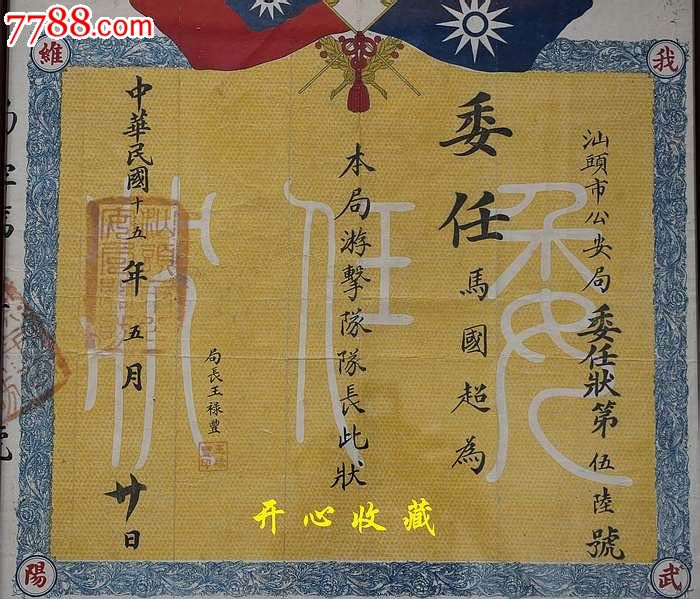 7788.com
我武維陽
汕頭市公安局委任狀第伍陸號
委任馬國超為
本局游擊隊隊長此狀
局長王祿豐
中華民國十五年五月廿日
委任狀
开心收藏